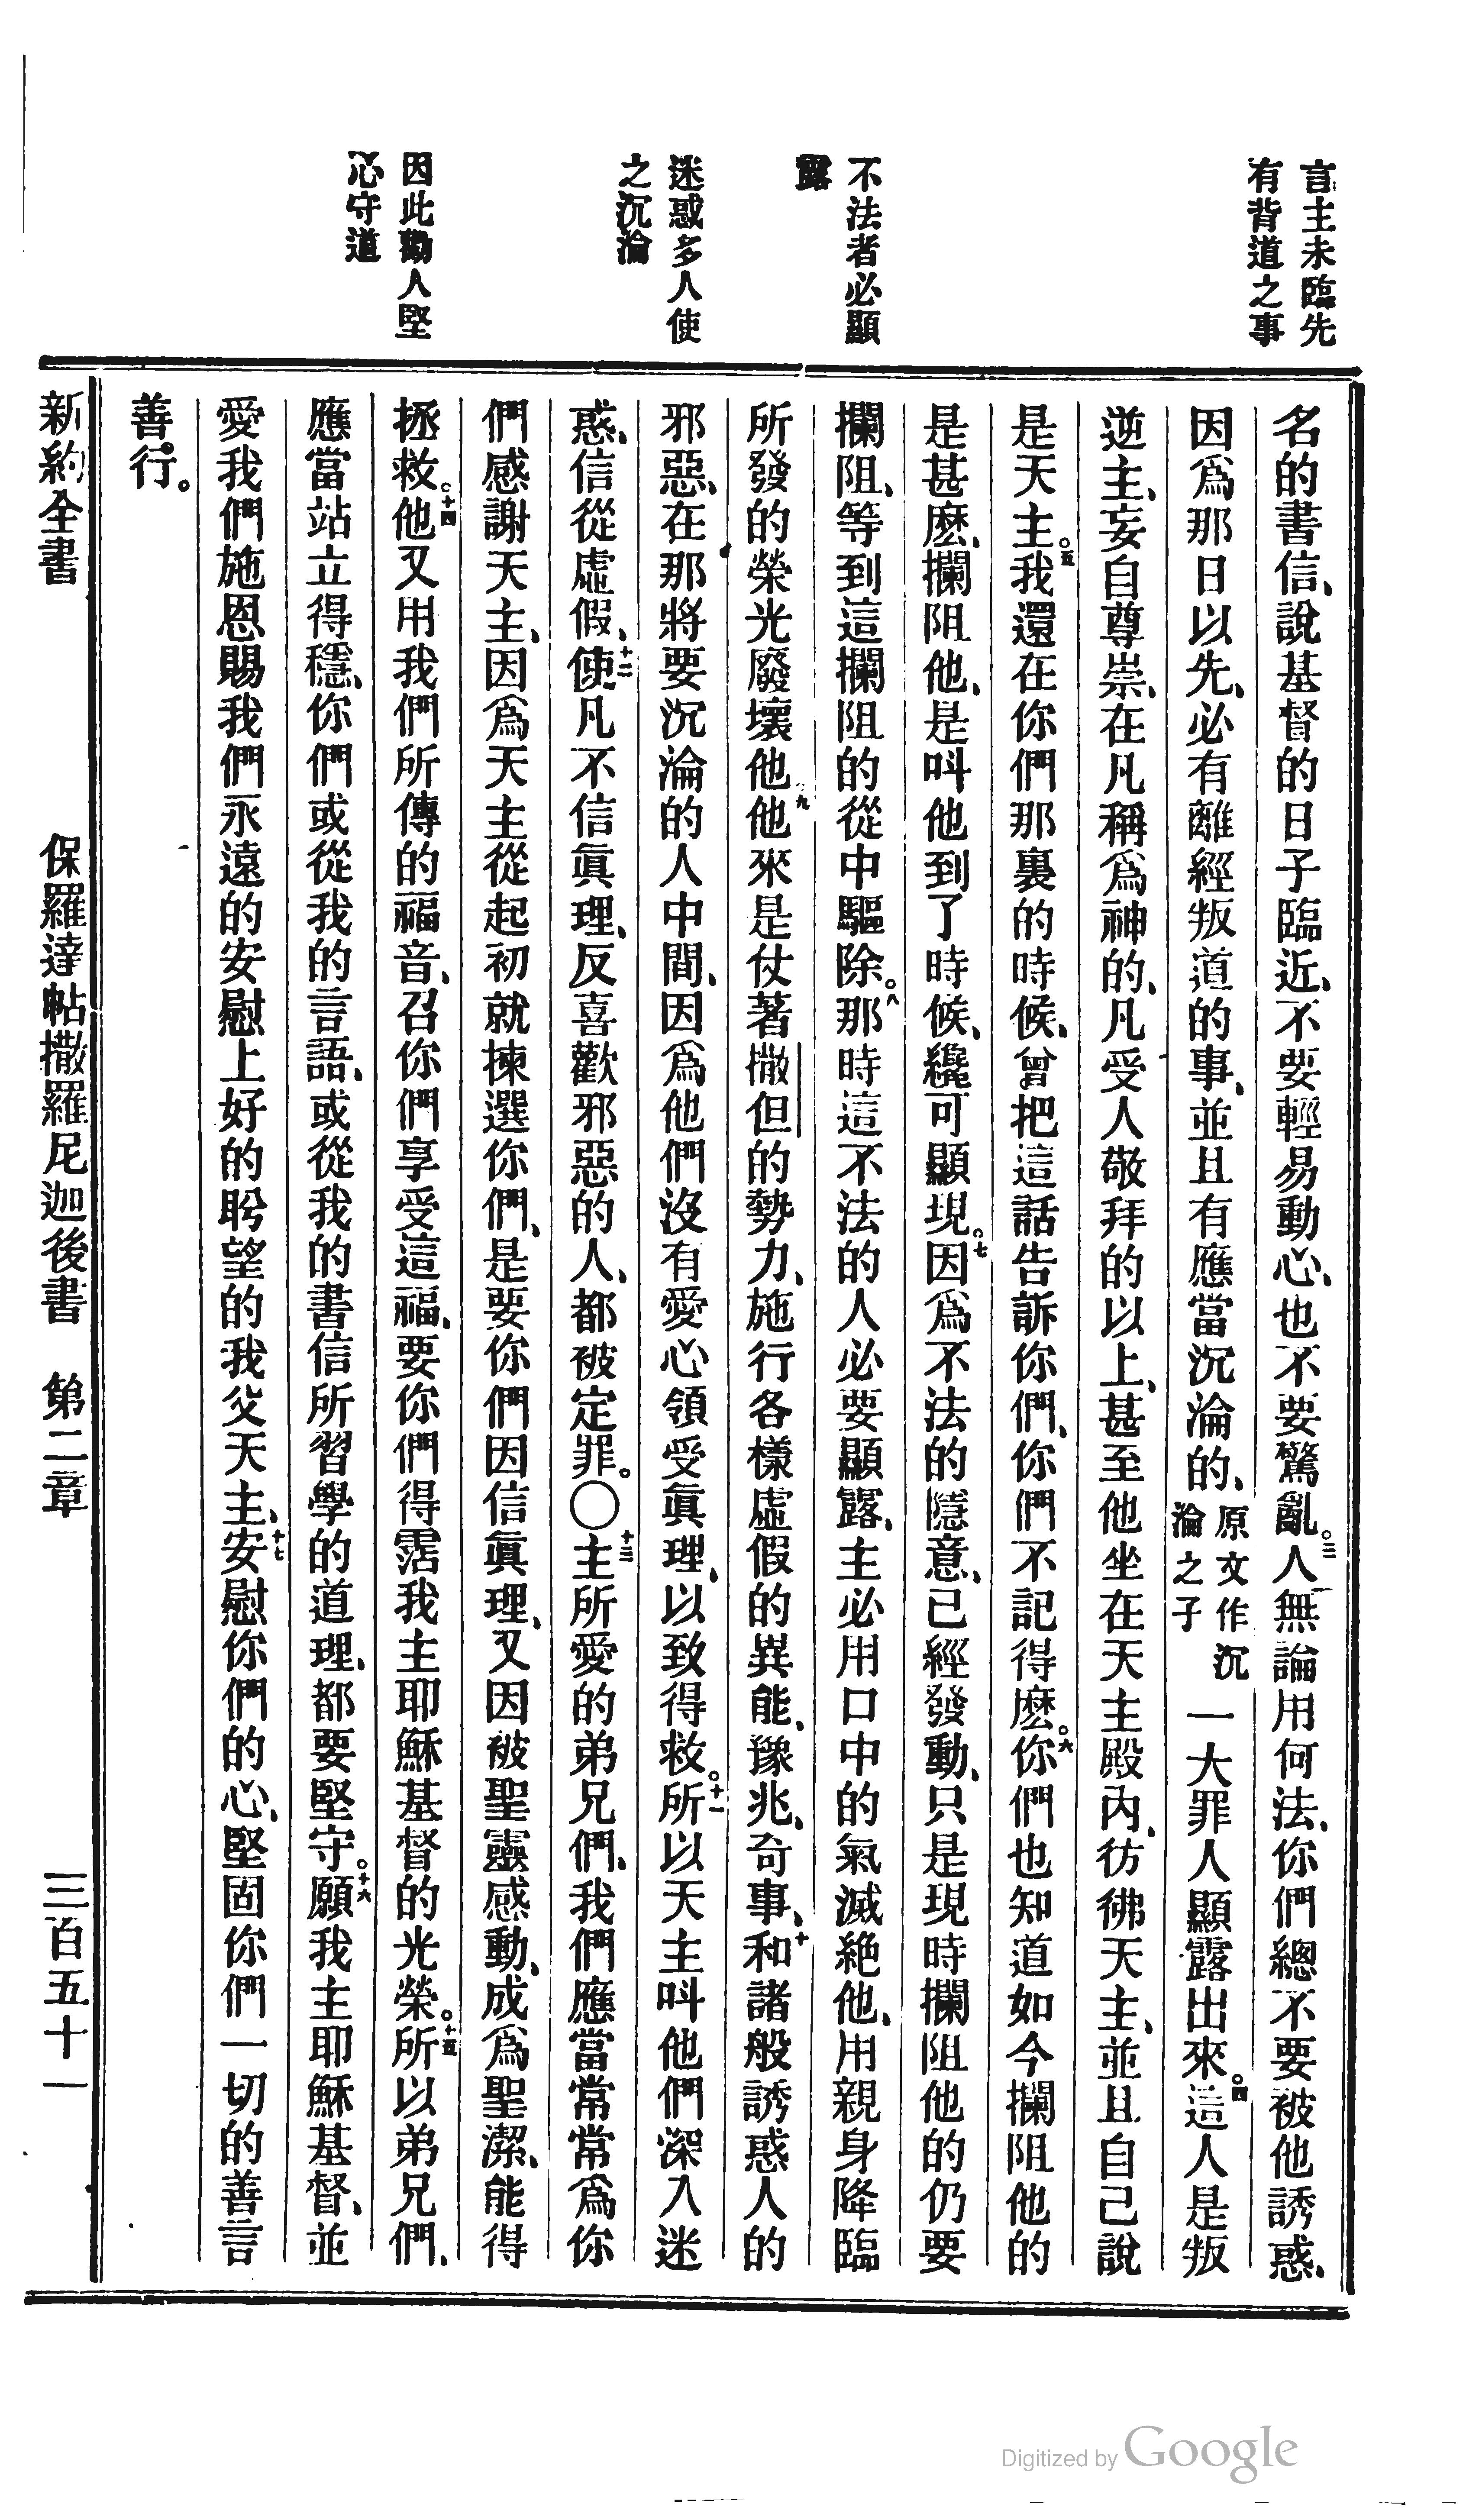 言主未臨先
有背道之事
不法者必顯
露
迷惑多人使
之沉淪
因此勸人堅
心守道
名的書信、說基督的日子臨近、不要輕易動心、也不要驚亂。三人無論用何法、你們總不要被他誘惑、
因爲那日以先、必有離經叛道的事、並且有應當沉淪的、原文作沉淪之子一大罪人顯露出來。四這人是叛
逆主、妄自尊崇、在凡稱爲神的、凡受人敬拜的以上、甚至他坐在天主殿內、彷彿天主、並且自己說
是天主。五我還在你們那裏的時候、曾把這話告訴你們、你們不記得麽。六你們也知道如今攔阻他的
是甚麽、攔阻他、是呌他到了時候、纔可顯現。七因爲不法的隱意、已經發動、只是現時攔阻他的仍要
攔阻、等到這攔阻的從中驅除。八那時這不法的人必要顯露、主必用口中的氣滅絕他、用親身降臨
所發的榮光廢壞他九他來是仗著撒但的勢力、施行各樣虛假的異能、豫兆、奇事、十和諸般誘惑人的
邪惡、在那將要沉淪的人中間、因爲他們沒有愛心領受眞理、以致得救。十一所以天主呌他們深入迷
惑、信從虛假、十二使凡不信眞理、反喜歡邪惡的人、都被定罪。〇十三主所愛的弟兄們、我們應當常常爲你
們感謝天主、因爲天主從起初就揀選你們、是要你們因信眞理、又因被聖靈感動、成爲聖潔、能得
拯救。十四他又用我們所傳的福音、召你們享受這福、要你們得霑我主耶穌基督的光榮。十五所以弟兄們、
應當站立得穩、你們或從我的言語、或從我的書信所習學的道理、都要堅守。十六願我主耶穌基督、並
愛我們施恩賜我們永遠的安慰上好的盼望的我父天主、十七安慰你們的心、堅固你們一切的善言
善行。
新約全書 保羅達帖撒羅尼迦後書 第二章 三百五十一
Digitized by Google